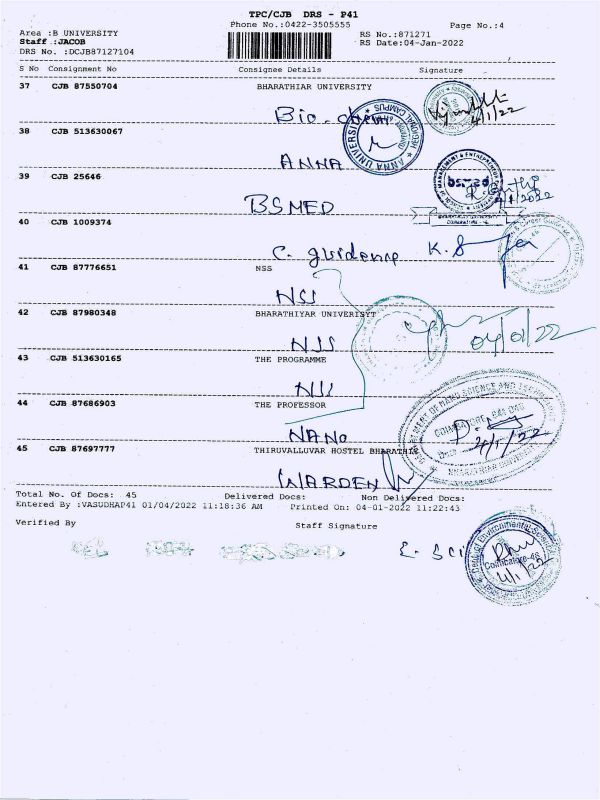 TPC/CJB DRS - P41
Phone No.:0422-3505555 Page No.:4
Area :B UNIVERSITY RS No.:871271
Staff :JACOB RS Date:04-Jan-2022
DRS No. :DCJB87127104
S No Consignment No Consignee Details Signature
37 CJB 87550704 BHARATHIAR UNIVERSITY
Bio-chem 4/1/22
38 CJB 513630067
ANNA
ANNA UNIVERSITY REGIONAL CAMPUS
39 CJB 25646
BSMED
bsmed
40 CJB 1009374
C. guidence K. S
41 CJB 87776651 NSS
NSS
42 CJB 87980348 BHARATHIYAR UNIVERISYT
NSS 04/01/22
43 CJB 513630165 THE PROGRAMME
NSS
44 CJB 87686903 THE PROFESSOR
NANO
DEPARTMENT OF NANO SCIENCE AND TECHNOLOGY
COIMBATORE-641 046
4/1/22
45 CJB 87697777 THIRUVALLUVAR HOSTEL BHARATHIE
WARDEN
Total No. Of Docs: 45 Delivered Docs: Non Delivered Docs:
Entered By :VASUDHAP41 01/04/2022 11:18:36 AM Printed On: 04-01-2022 11:22:43
Verified By Staff Signature
E. Sci
Coimbatore-46
4/1/22